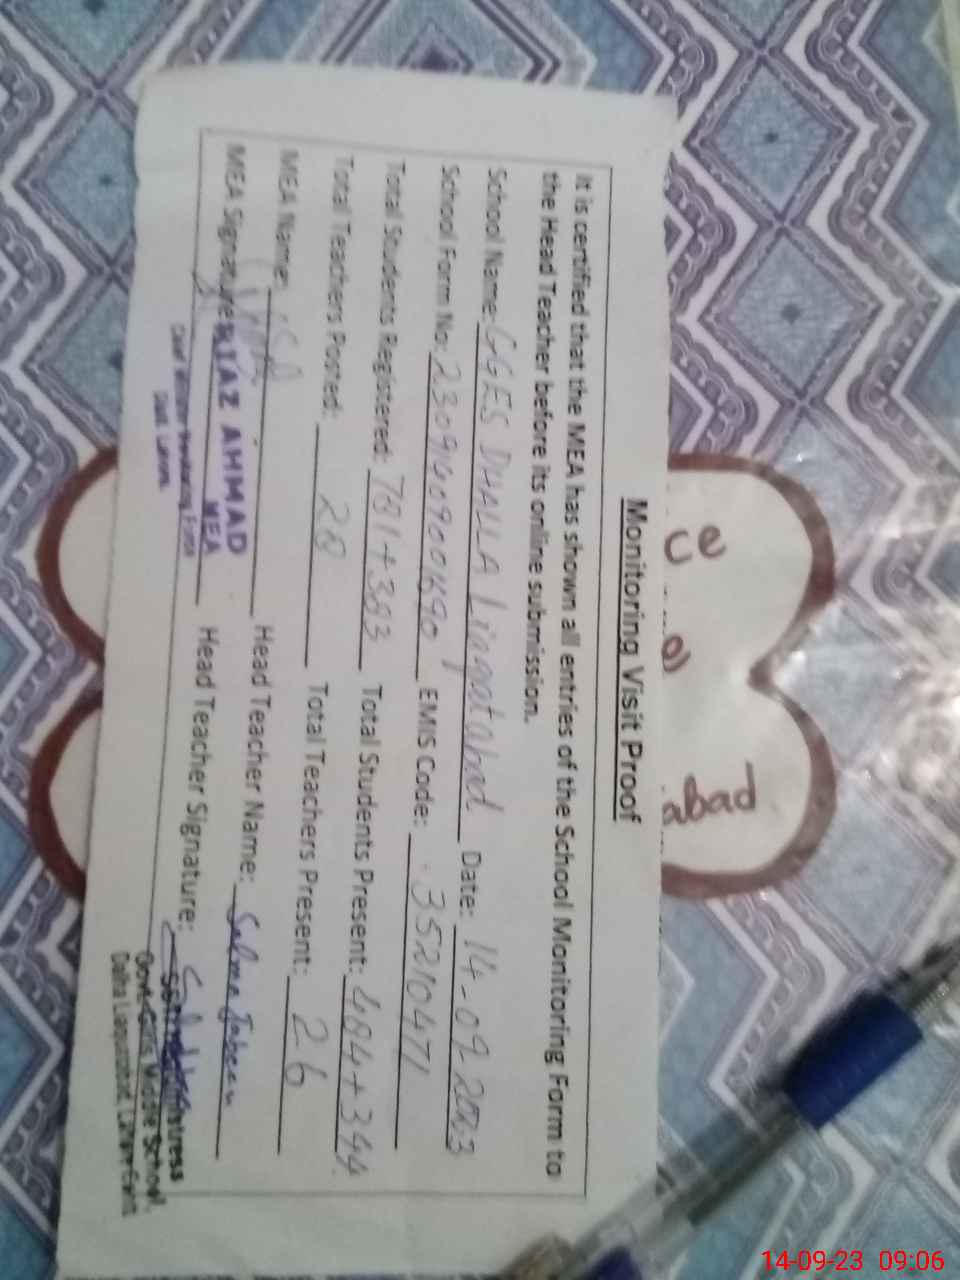 Monitoring Visit Proof
It is certified that the MEA has shown all entries of the School Monitoring Form to
the Head Teacher before its online submission.
School Name: GGES DHALLA Liaqatabad Date: 14-09 2023
School Form No: EMIS Code: 35210471
Total Students Registered: 781+383 Total Students Present: 484+344
Total Teachers Posted: 28 Total Teachers Present: 26
MEA Name: Head Teacher Name: Salma Jabeen
MEA Signature: Head Teacher Signature:
AHMAD
MEA
Govt. Girls Middle School,
ce
e
abad
14-09-23 09:06